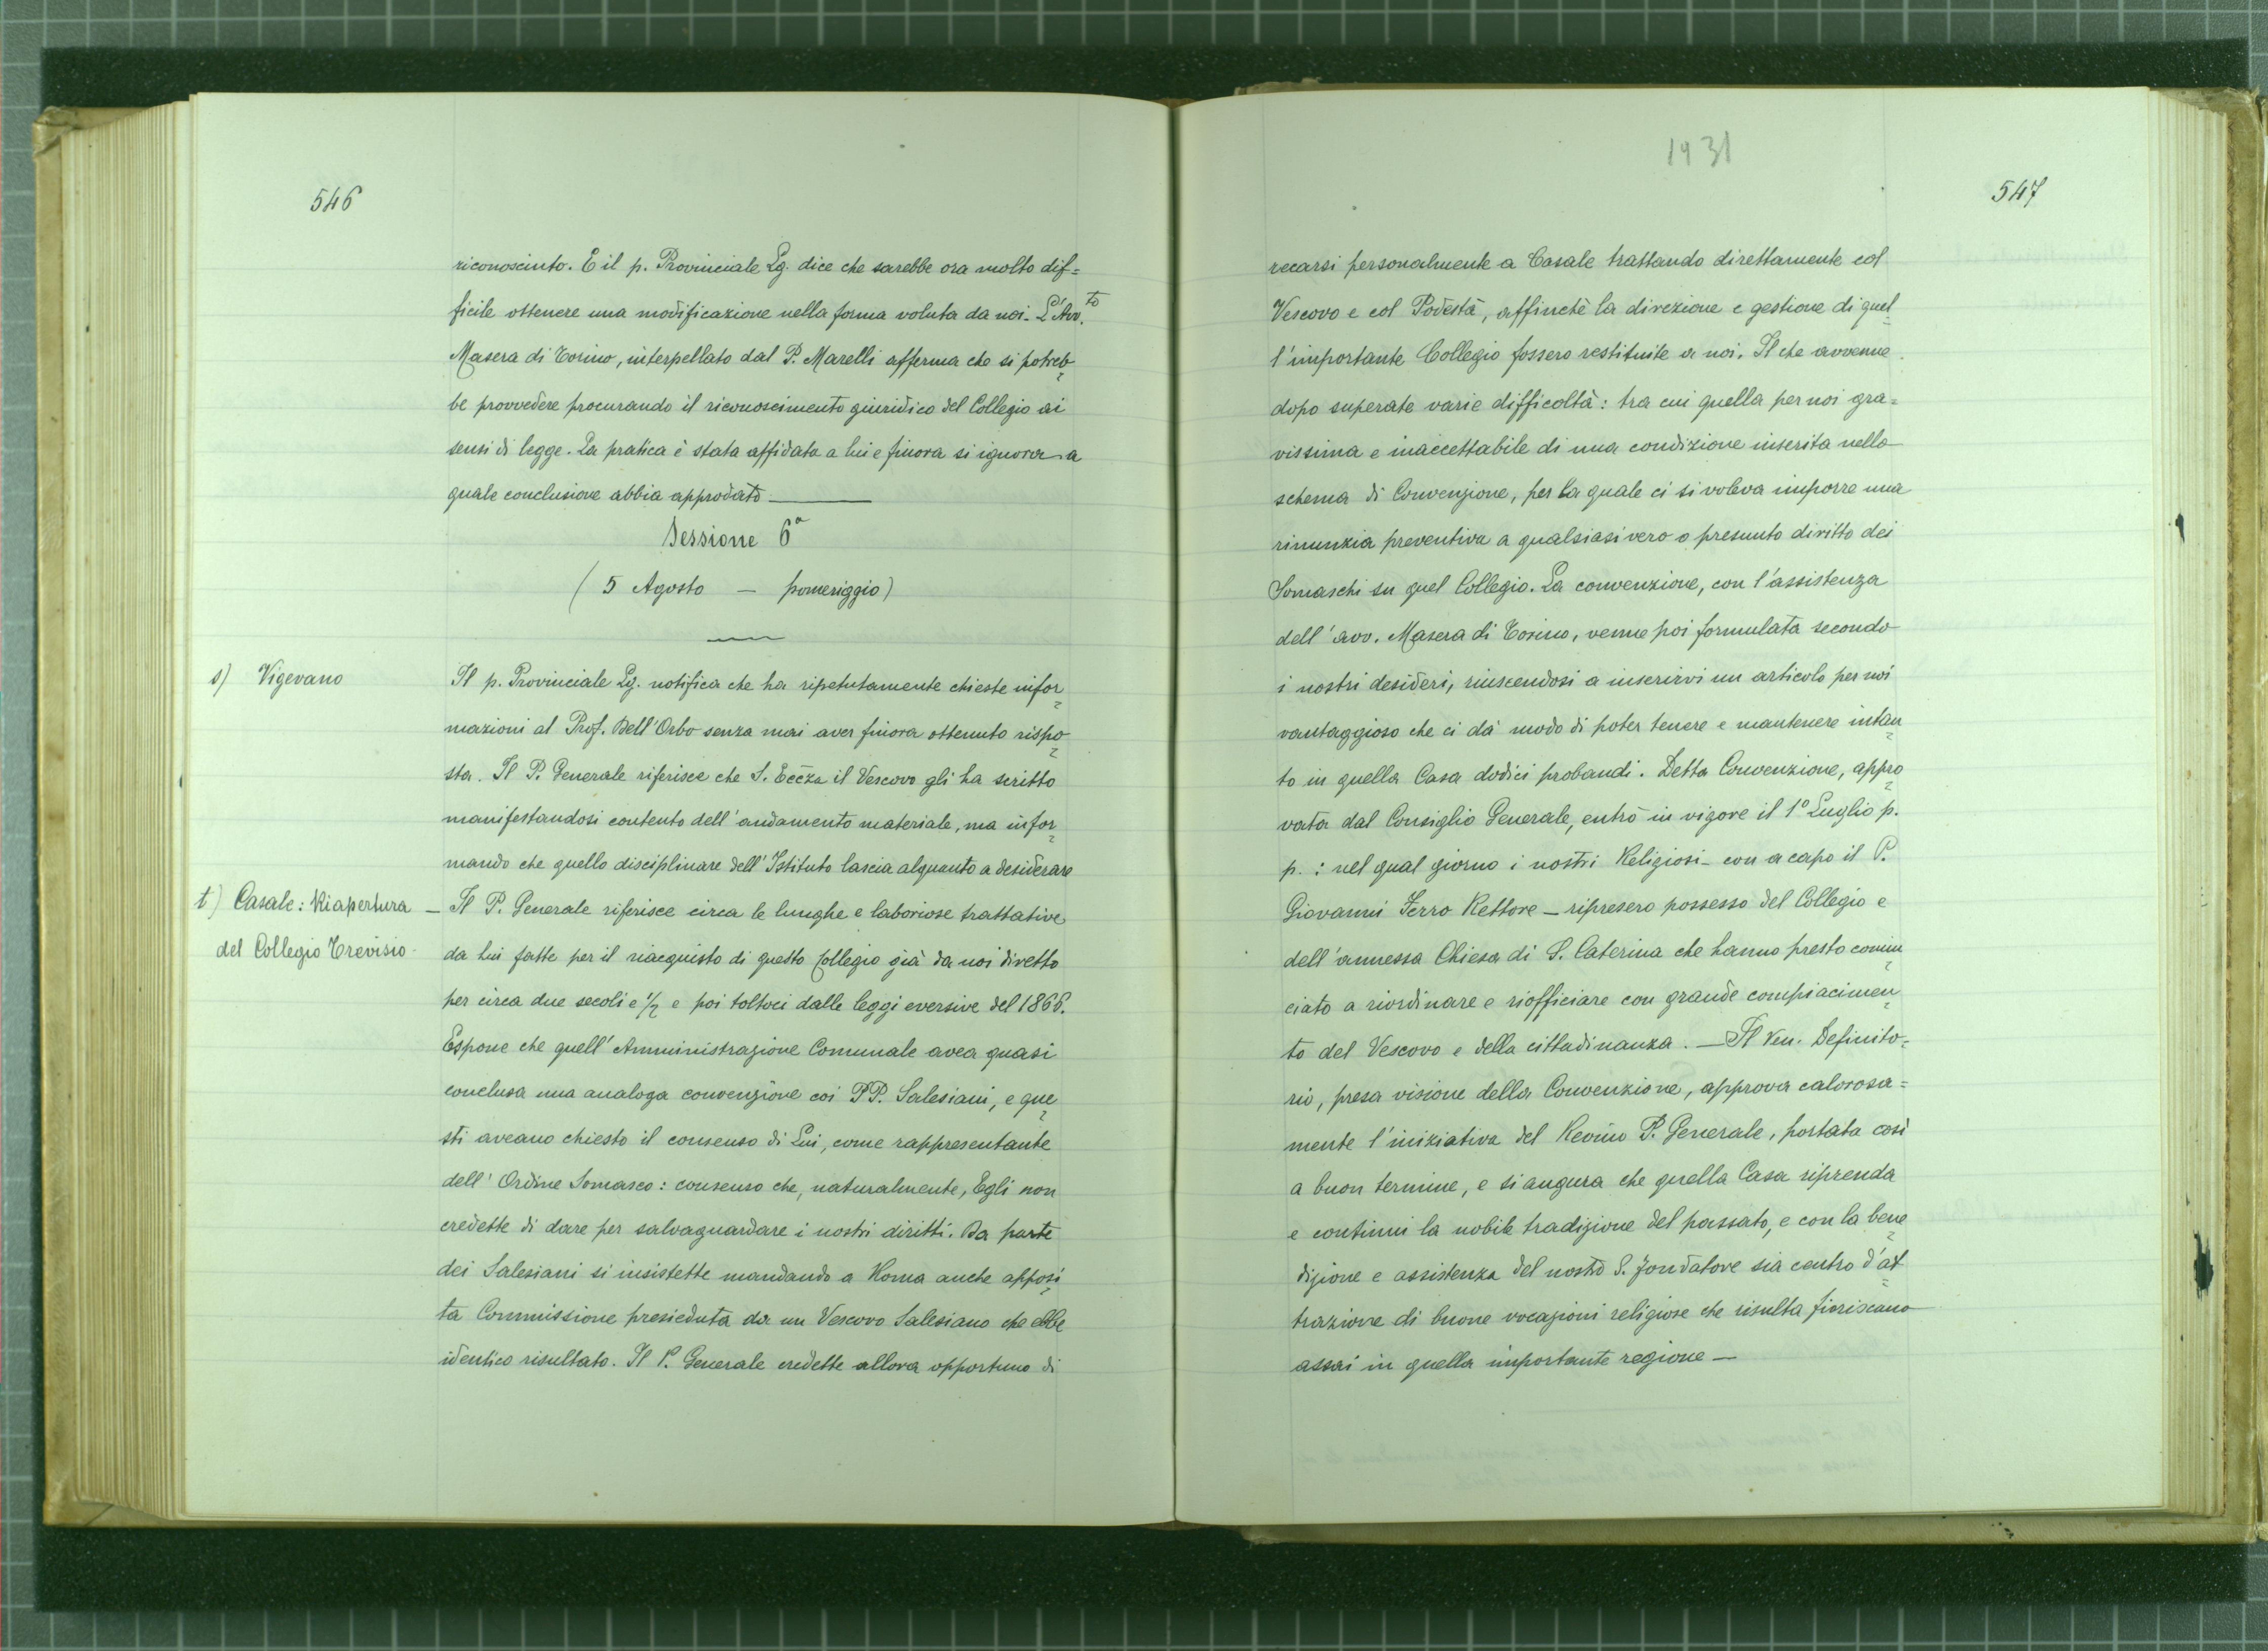 546
riconosciuto. E il p. Provinciale Lg. dice che sarebbe ora molto dif=
ficile ottenere una modificazione nella forma voluta da noi. L'Avv.to
Masera di Torino, interpellato dal P. Marelli afferma che si potreb=
be provvedere procurando il riconoscimento giuridico del Collegio ai
sensi di legge. La pratica è stata affidata a lui e finora si ignora a
quale conclusione abbia approdato —
Sessione 6a
( 5 Agosto — pomeriggio)
s) Vigevano
Il p. Provinciale Lg. notifica che ha ripetutamente chieste infor=
mazioni al Prof. Dell'Orbo senza mai aver finora ottenuto rispo=
sta. Il P. Generale riferisce che S. Eccza il Vescovo gli ha scritto
manifestandosi contento dell'andamento materiale, ma infor=
mando che quello disciplinare dell'Istituto lascia alquanto a desiderare
t) Casale: Riapertura
del Collegio Trevisio
— Il P. Generale riferisce circa le lunghe e laboriose trattative
da lui fatte per il riacquisto di questo Collegio già da noi diretto
per circa due secoli e 1/2 e poi toltoci dalle leggi eversive del 1866.
Espone che quell'Amministrazione Comunale avea quasi
conclusa una analoga convenzione coi PP. Salesiani, e que=
sti aveano chiesto il consenso di Lui, come rappresentante
dell'Ordine Somasco: consenso che, naturalmente, Egli non
credette di dare per salvaguardare i nostri diritti. Da parte
dei Salesiani si insistette mandando a Roma anche apposi=
ta Commissione presieduta da un Vescovo Salesiano che ebbe
identico risultato. Il P. Generale credette allora opportuno di
1931
547
recarsi personalmente a Casale trattando direttamente col
Vescovo e col Podestà, affinchè la direzione e gestione di quel=
l'importante Collegio fossero restituite a noi. Il che avvenne
dopo superate varie difficoltà: tra cui quella per noi gra=
vissima e inaccettabile di una condizione inserita nello
schema di Convenzione, per la quale ci si voleva imporre una
rinunzia preventiva a qualsiasi vero o presunto diritto dei
Somaschi su quel Collegio. La convenzione, con l'assistenza
dell'avv. Masera di Torino, venne poi formulata secondo
i nostri desideri, riuscendosi a inserirvi un articolo per noi
vantaggioso che ci dà modo di poter tenere e mantenere intan=
to in quella Casa dodici probandi. Detta Convenzione, appro=
vata dal Consiglio Generale, entrò in vigore il 1º Luglio p.
p.: nel qual giorno i nostri Religiosi — con a capo il P.
Giovanni Ferro Rettore — ripresero possesso del Collegio e
dell'annessa Chiesa di S. Caterina che hanno presto comin=
ciato a riordinare e riofficiare con grande compiacimen=
to del Vescovo e della cittadinanza. — Il Ven. Definito=
rio, presa visione della Convenzione, approva calorosa=
mente l'iniziativa del Revmo P. Generale, portata così
a buon termine, e si augura che quella Casa riprenda
e continui la nobile tradizione del passato, e con la bene=
dizione e assistenza del nostro S. Fondatore sia centro d'at=
trazione di buone vocazioni religiose che risulta fioriscano
assai in quella importante regione —